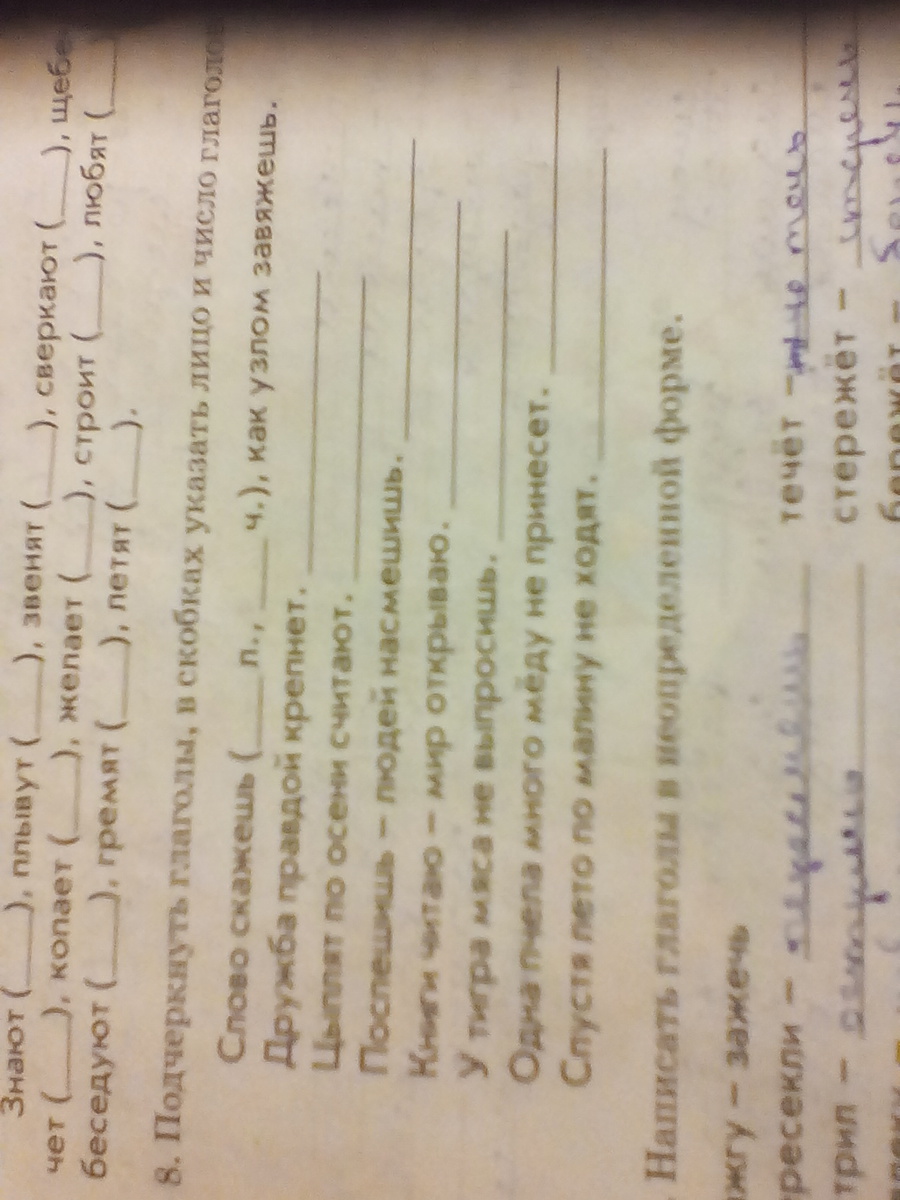 Знают (___), плывут (___), звенят (___), сверкают (___), щебе
чет (___), копает (___), желает (___), строит (___), любят (___
беседуют (___), гремят (___), летят (___).
8. Подчеркнуть глаголы, в скобках указать лицо и число глаголов
Слово скажешь (___ л., ___ ч.), как узлом завяжешь.
Дружба правдой крепнет. ___
Цыплят по осени считают. ___
Поспешишь – людей насмешишь. ___
Книги читаю – мир открываю. ___
У тигра мяса не выпросишь. ___
Одна пчела много мёду не принесет. ___
Спустя лето по малину не ходят. ___
Написать глаголы в неопределенной форме.
жгу – зажечь
ресекли – течёт –
трил – стережёт –
бережёт –